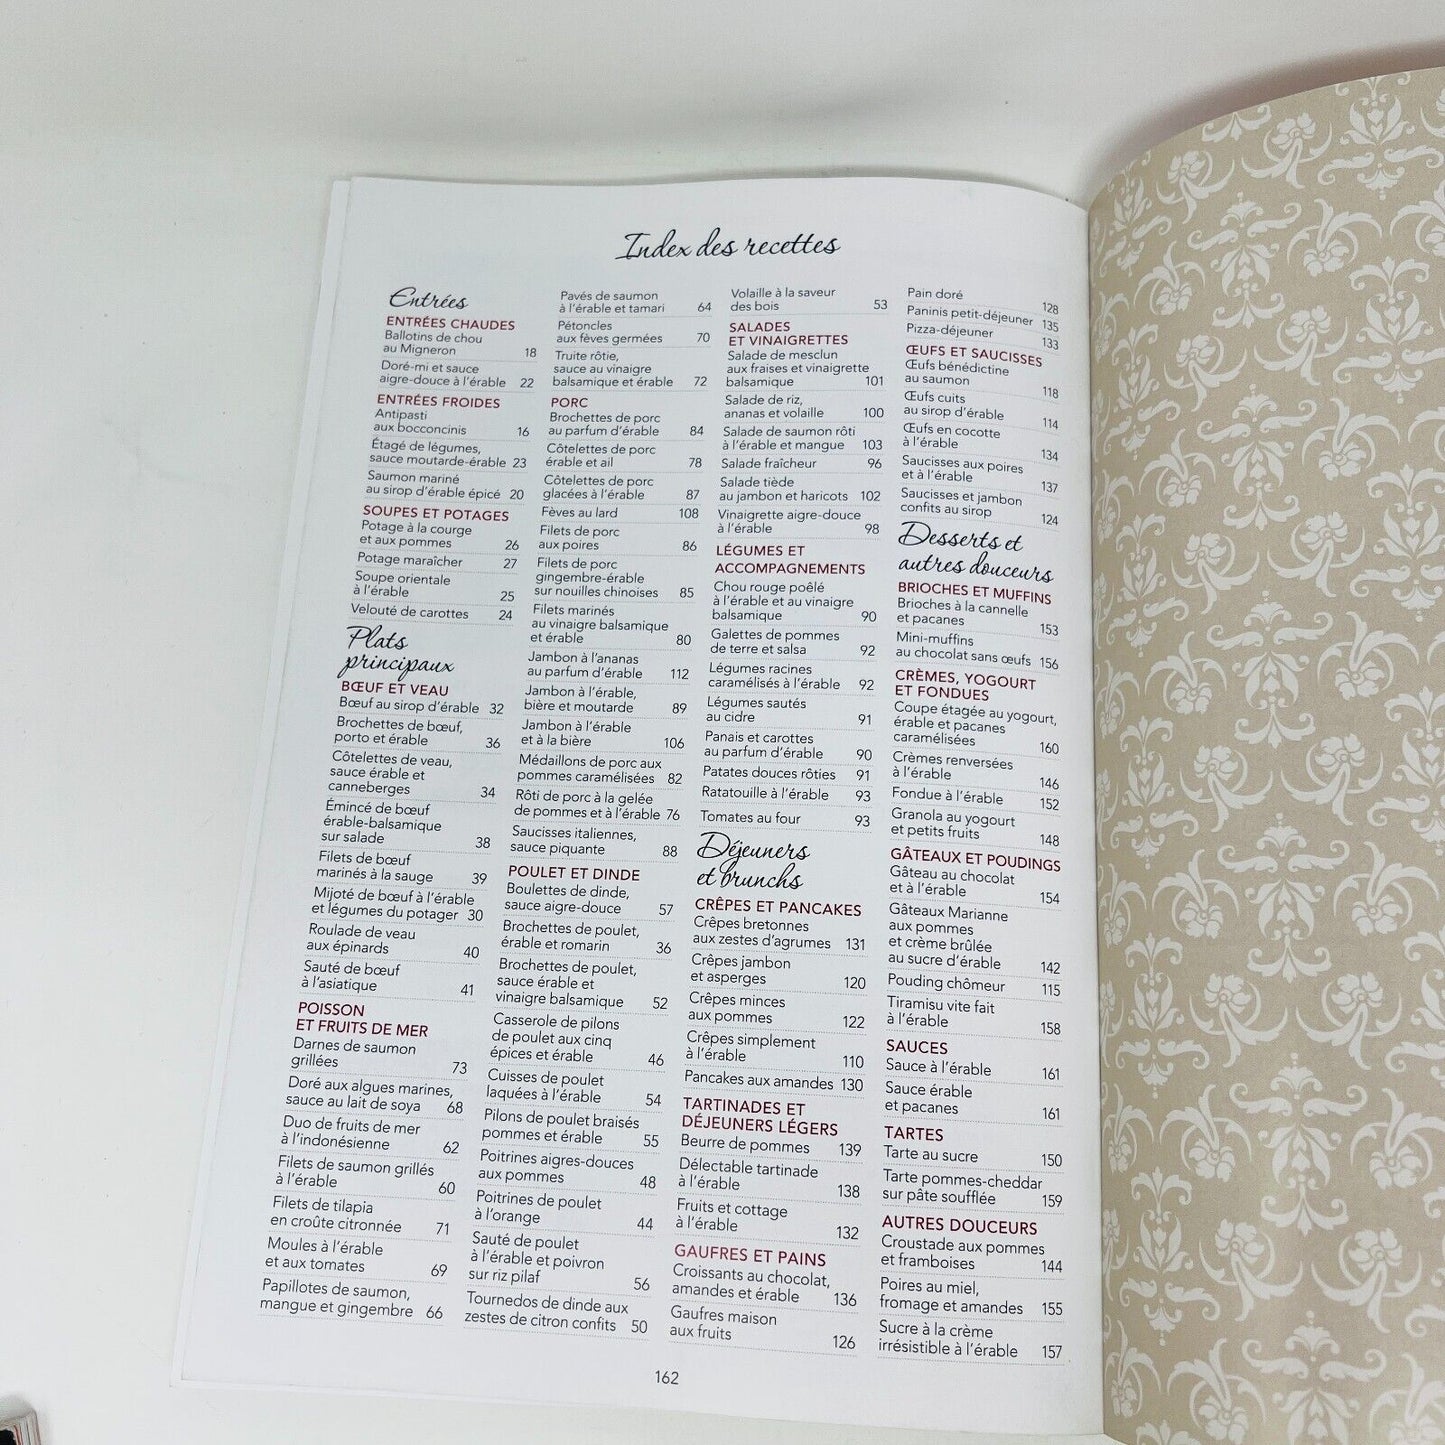 Index des recettes
Entrées
ENTRÉES CHAUDES
Ballotins de chou
au Migneron 18
Doré-mi et sauce
aigre-douce à l'érable 22
ENTRÉES FROIDES
Antipasti
aux bocconcinis 16
Étagé de légumes,
sauce moutarde-érable 23
Saumon mariné
au sirop d'érable épicé 20
SOUPES ET POTAGES
Potage à la courge
et aux pommes 26
Potage maraîcher 27
Soupe orientale
à l'érable 25
Velouté de carottes 24
Plats
principaux
BŒUF ET VEAU
Bœuf au sirop d'érable 32
Brochettes de bœuf,
porto et érable 36
Côtelettes de veau,
sauce érable et
canneberges 34
Émincé de bœuf
érable-balsamique
sur salade 38
Filets de bœuf
marinés à la sauge 39
Mijoté de bœuf à l'érable
et légumes du potager 30
Roulade de veau
aux épinards 40
Sauté de bœuf
à l'asiatique 41
POISSON
ET FRUITS DE MER
Darnes de saumon
grillées 73
Doré aux algues marines,
sauce au lait de soya 68
Duo de fruits de mer
à l'indonésienne 62
Filets de saumon grillés
à l'érable 60
Filets de tilapia
en croûte citronnée 71
Moules à l'érable
et aux tomates 69
Papillotes de saumon,
mangue et gingembre 66
Pavés de saumon
à l'érable et tamari 64
Pétoncles
aux fèves germées 70
Truite rôtie,
sauce au vinaigre
balsamique et érable 72
PORC
Brochettes de porc
au parfum d'érable 84
Côtelettes de porc
érable et ail 78
Côtelettes de porc
glacées à l'érable 87
Fèves au lard 108
Filets de porc
aux poires 86
Filets de porc
gingembre-érable
sur nouilles chinoises 85
Filets marinés
au vinaigre balsamique
et érable 80
Jambon à l'ananas
au parfum d'érable 112
Jambon à l'érable,
bière et moutarde 89
Jambon à l'érable
et à la bière 106
Médaillons de porc aux
pommes caramélisées 82
Rôti de porc à la gelée
de pommes et à l'érable 76
Saucisses italiennes,
sauce piquante 88
POULET ET DINDE
Boulettes de dinde,
sauce aigre-douce 57
Brochettes de poulet,
érable et romarin 36
Brochettes de poulet,
sauce érable et
vinaigre balsamique 52
Casserole de pilons
de poulet aux cinq
épices et érable 46
Cuisses de poulet
laquées à l'érable 54
Pilons de poulet braisés
pommes et érable 55
Poitrines aigres-douces
aux pommes 48
Poitrines de poulet
à l'orange 44
Sauté de poulet
à l'érable et poivron
sur riz pilaf 56
Tournedos de dinde aux
zestes de citron confits 50
Volaille à la saveur
des bois 53
SALADES
ET VINAIGRETTES
Salade de mesclun
aux fraises et vinaigrette
balsamique 101
Salade de riz,
ananas et volaille 100
Salade de saumon rôti
à l'érable et mangue 103
Salade fraîcheur 96
Salade tiède
au jambon et haricots 102
Vinaigrette aigre-douce
à l'érable 98
LÉGUMES ET
ACCOMPAGNEMENTS
Chou rouge poêlé
à l'érable et au vinaigre
balsamique 90
Galettes de pommes
de terre et salsa 92
Légumes racines
caramélisés à l'érable 92
Légumes sautés
au cidre 91
Panais et carottes
au parfum d'érable 90
Patates douces rôties 91
Ratatouille à l'érable 93
Tomates au four 93
Déjeuners
et brunchs
CRÊPES ET PANCAKES
Crêpes bretonnes
aux zestes d'agrumes 131
Crêpes jambon
et asperges 120
Crêpes minces
aux pommes 122
Crêpes simplement
à l'érable 110
Pancakes aux amandes 130
TARTINADES ET
DÉJEUNERS LÉGERS
Beurre de pommes 139
Délectable tartinade
à l'érable 138
Fruits et cottage
à l'érable 132
GAUFRES ET PAINS
Croissants au chocolat,
amandes et érable 136
Gaufres maison
aux fruits 126
Pain doré 128
Paninis petit-déjeuner 135
Pizza-déjeuner 133
ŒUFS ET SAUCISSES
Œufs bénédictine
au saumon 118
Œufs cuits
au sirop d'érable 114
Œufs en cocotte
à l'érable 134
Saucisses aux poires
et à l'érable 137
Saucisses et jambon
confits au sirop 124
Desserts et
autres douceurs
BRIOCHES ET MUFFINS
Brioches à la cannelle
et pacanes 153
Mini-muffins
au chocolat sans œufs 156
CRÈMES, YOGOURT
ET FONDUES
Coupe étagée au yogourt,
érable et pacanes
caramélisées 160
Crèmes renversées
à l'érable 146
Fondue à l'érable 152
Granola au yogourt
et petits fruits 148
GÂTEAUX ET POUDINGS
Gâteau au chocolat
et à l'érable 154
Gâteaux Marianne
aux pommes
et crème brûlée
au sucre d'érable 142
Pouding chômeur 115
Tiramisu vite fait
à l'érable 158
SAUCES
Sauce à l'érable 161
Sauce érable
et pacanes 161
TARTES
Tarte au sucre 150
Tarte pommes-cheddar
sur pâte soufflée 159
AUTRES DOUCEURS
Croustade aux pommes
et framboises 144
Poires au miel,
fromage et amandes 155
Sucre à la crème
irrésistible à l'érable 157
162